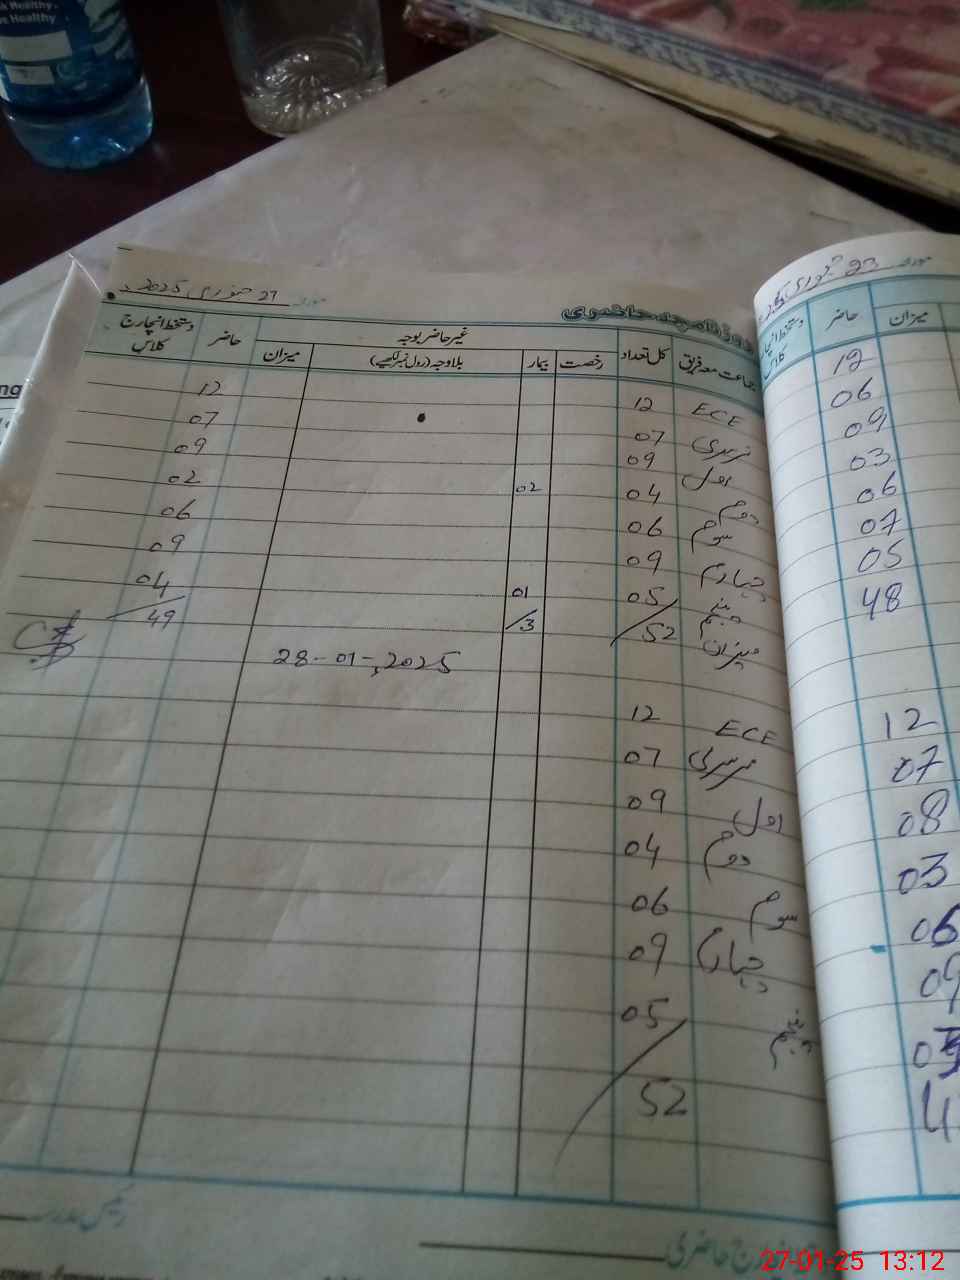 k Healthy.
Healthy
مورخہ 27 جنوری 2025ء
روزنامچہ حاضری
جماعت معہ فریق کل تعداد رخصت بیمار غیر حاضر بوجہ حاضر دستخط انچارج کلاس
بلاوجہ (رول نمبر لکھیے) میزان
ECE 12 12
نرسری 07 07
اول 09 09
دوم 04 02 02
سوم 06 06
چہارم 09 09
پنجم 05 01 04
میزان 52 3 49
28-01-2025
ECE 12
نرسری 07
اول 09
دوم 04
سوم 06
چہارم 09
پنجم 05
52
انچارج حاضری
رئیس مدرسہ
مورخہ 23 جنوری
میزان حاضر دستخط انچارج کلاس
12
06
09
03
06
07
05
48
12
07
08
03
06
09
05
27-01-25 13:12